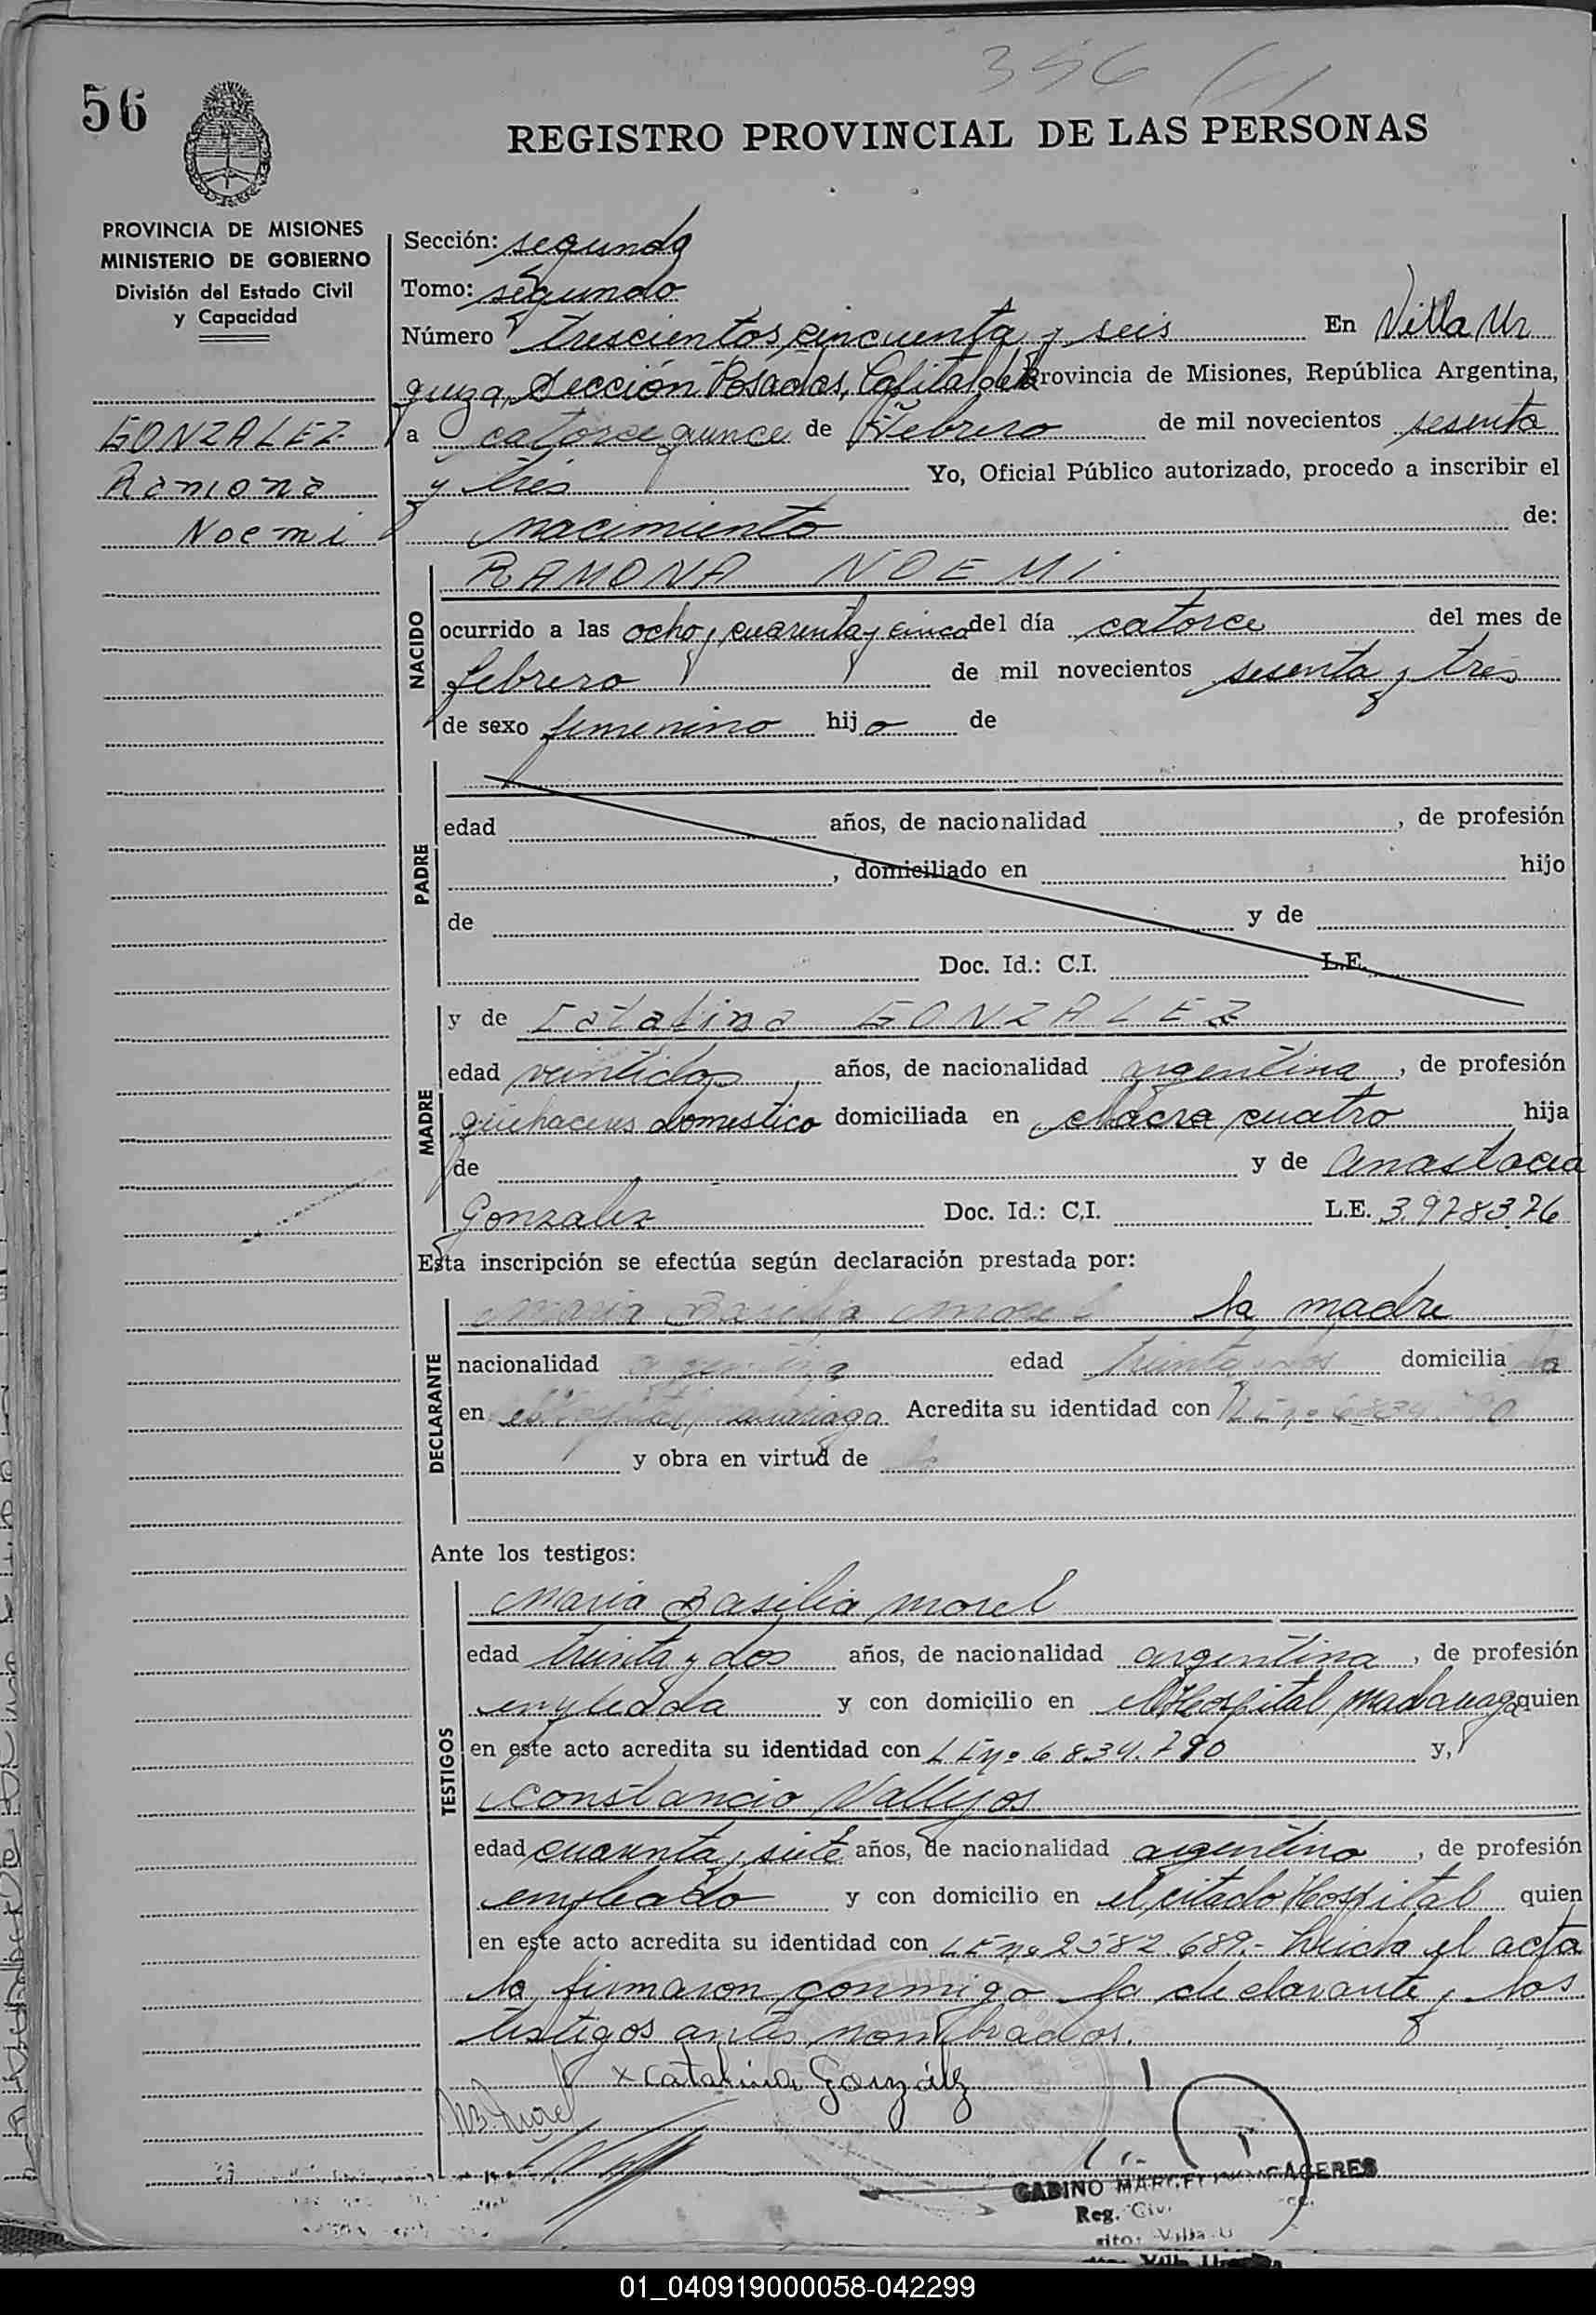 356
56
REGISTRO PROVINCIAL DE LAS PERSONAS
PROVINCIA DE MISIONES
MINISTERIO DE GOBIERNO
División del Estado Civil
y Capacidad
GONZALEZ
Ramona
Noemi
Sección: segunda
Tomo: segundo
Número trescientos cincuenta y seis En Villa Ur
quiza, Sección Posadas, Capital de la Provincia de Misiones, República Argentina,
a catorce quince de Febrero de mil novecientos sesenta
y tres Yo, Oficial Público autorizado, procedo a inscribir el
nacimiento de:
NACIDO
RAMONA NOEMI
ocurrido a las ocho y cuarenta y cinco del día catorce del mes de
febrero de mil novecientos sesenta y tres
de sexo femenino hijo de
PADRE
edad años, de nacionalidad , de profesión
, domiciliado en hijo
de y de
Doc. Id.: C.I. L.E.
MADRE
y de Catalina GONZALEZ
edad veintidos años, de nacionalidad argentina, de profesión
quehaceres domestico domiciliada en chacra cuatro hija
de y de Anastacia
Gonzalez Doc. Id.: C.I. L.E. 3.978376
Esta inscripción se efectúa según declaración prestada por:
DECLARANTE
Maria Basilia Morel la madre
nacionalidad argentina edad treinta y dos domicilia da
en el Hospital Madariaga Acredita su identidad con
y obra en virtud de
Ante los testigos:
TESTIGOS
Maria Basilia Morel
edad treinta y dos años, de nacionalidad argentina, de profesión
empleada y con domicilio en el Hospital Madariaga quien
en este acto acredita su identidad con L E nº 6.834.790 y,
Constancio Vallejos
edad cuarenta y siete años, de nacionalidad argentino, de profesión
empleado y con domicilio en el citado Hospital quien
en este acto acredita su identidad con L E nº 2582.689.- Leida el acta
la firmaron conmigo la declarante y los
testigos antes nombrados.
x Catalina González
M.B. Morel
GABINO MARCELINO CACERES
Reg. Civ.
Villa U
01_040919000058-042299